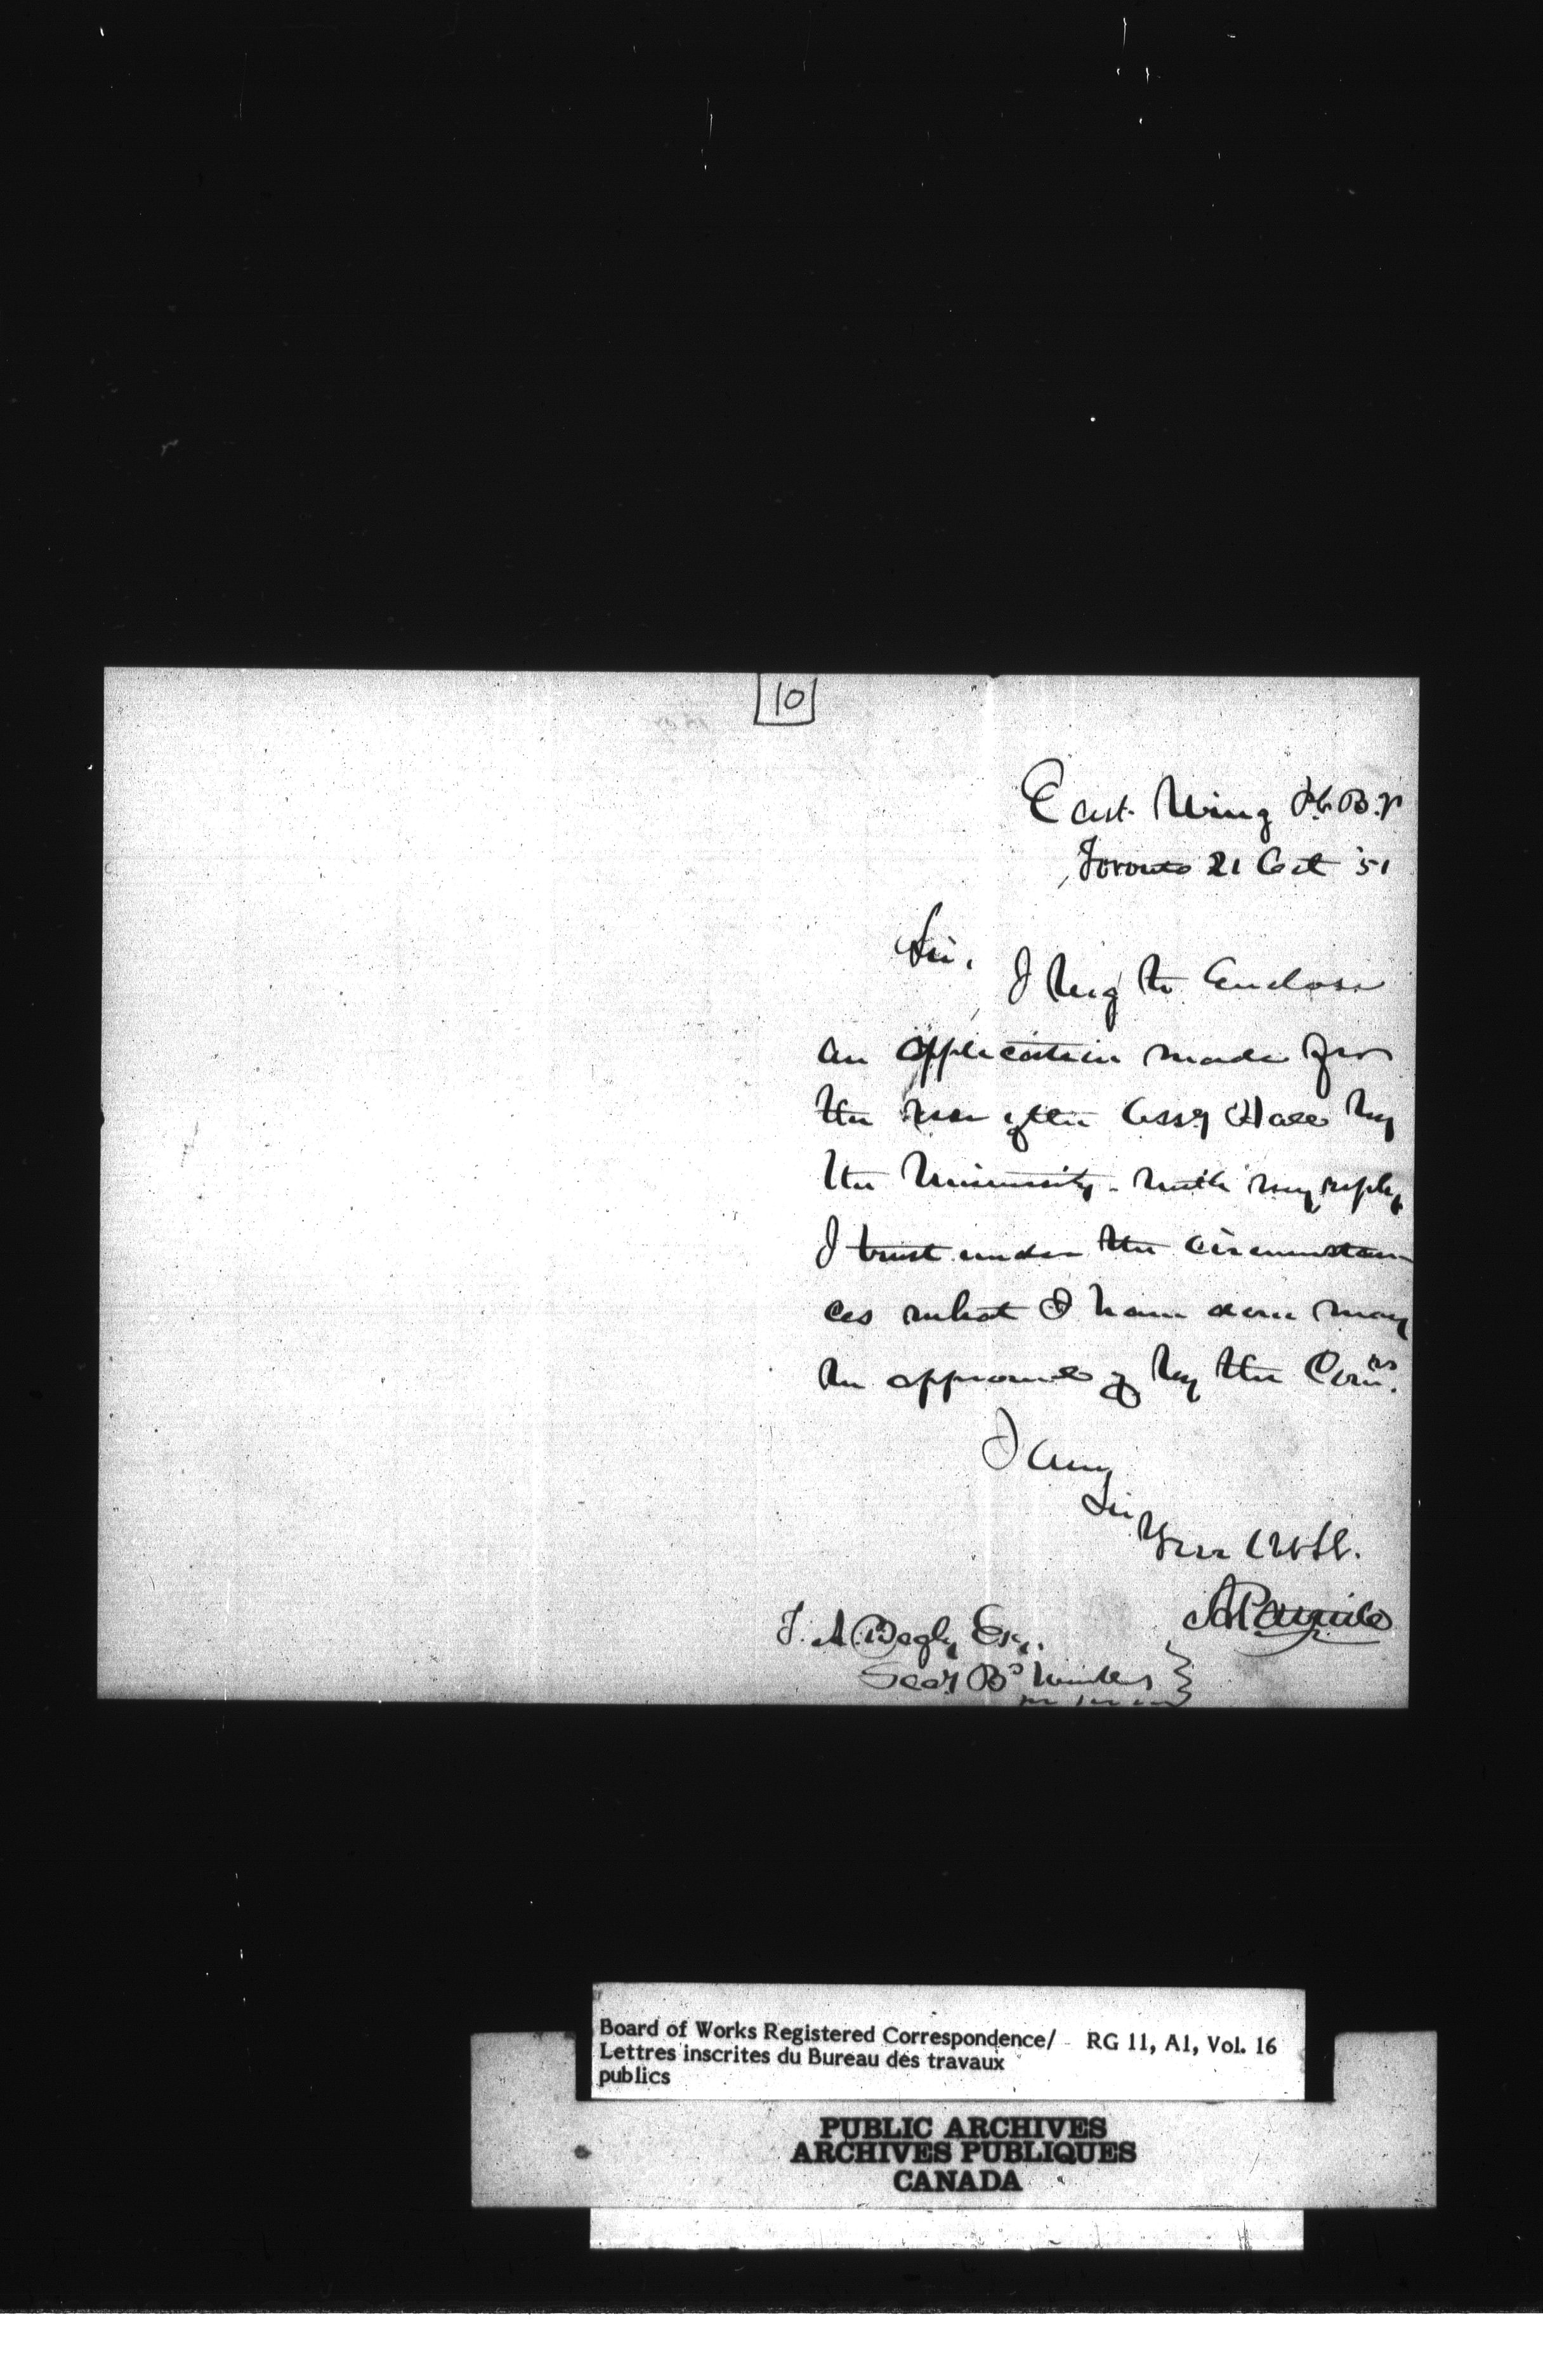 10
East Wing P. B.
Toronto 21 Oct '51
Sir,
I beg to Enclose
an application made for
the use of the Assy Hall by
the University - with my reply,
I trust under the circumstan
ces what I have done may
be approved of by the Comrs.
I am
Sir
Your
T. A. Begly Esq.
Secy Bd Works
Board of Works Registered Correspondence/ RG 11, A1, Vol. 16
Lettres inscrites du Bureau des travaux
publics
PUBLIC ARCHIVES
ARCHIVES PUBLIQUES
CANADA